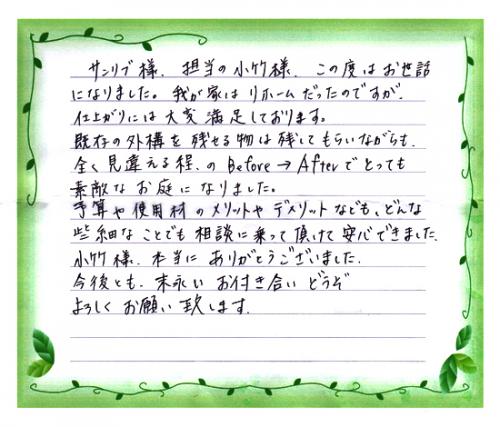 サンリブ様、担当の小竹様、この度はお世話
になりました。我が家は リホームだったのですが、
仕上がりには大変満足しております。
既存の外構を残せる物は残してもらいながらも、
全く見違える程、の Before → Afterでとっても
素敵なお庭になりました。
予算や使用材のメリットやデメリットなども、どんな
些細なことでも相談に乗って頂けて安心できました。
小竹様、本当にありがとうございました。
今後とも、末永いお付き合いどうぞ
よろしくお願い致します。